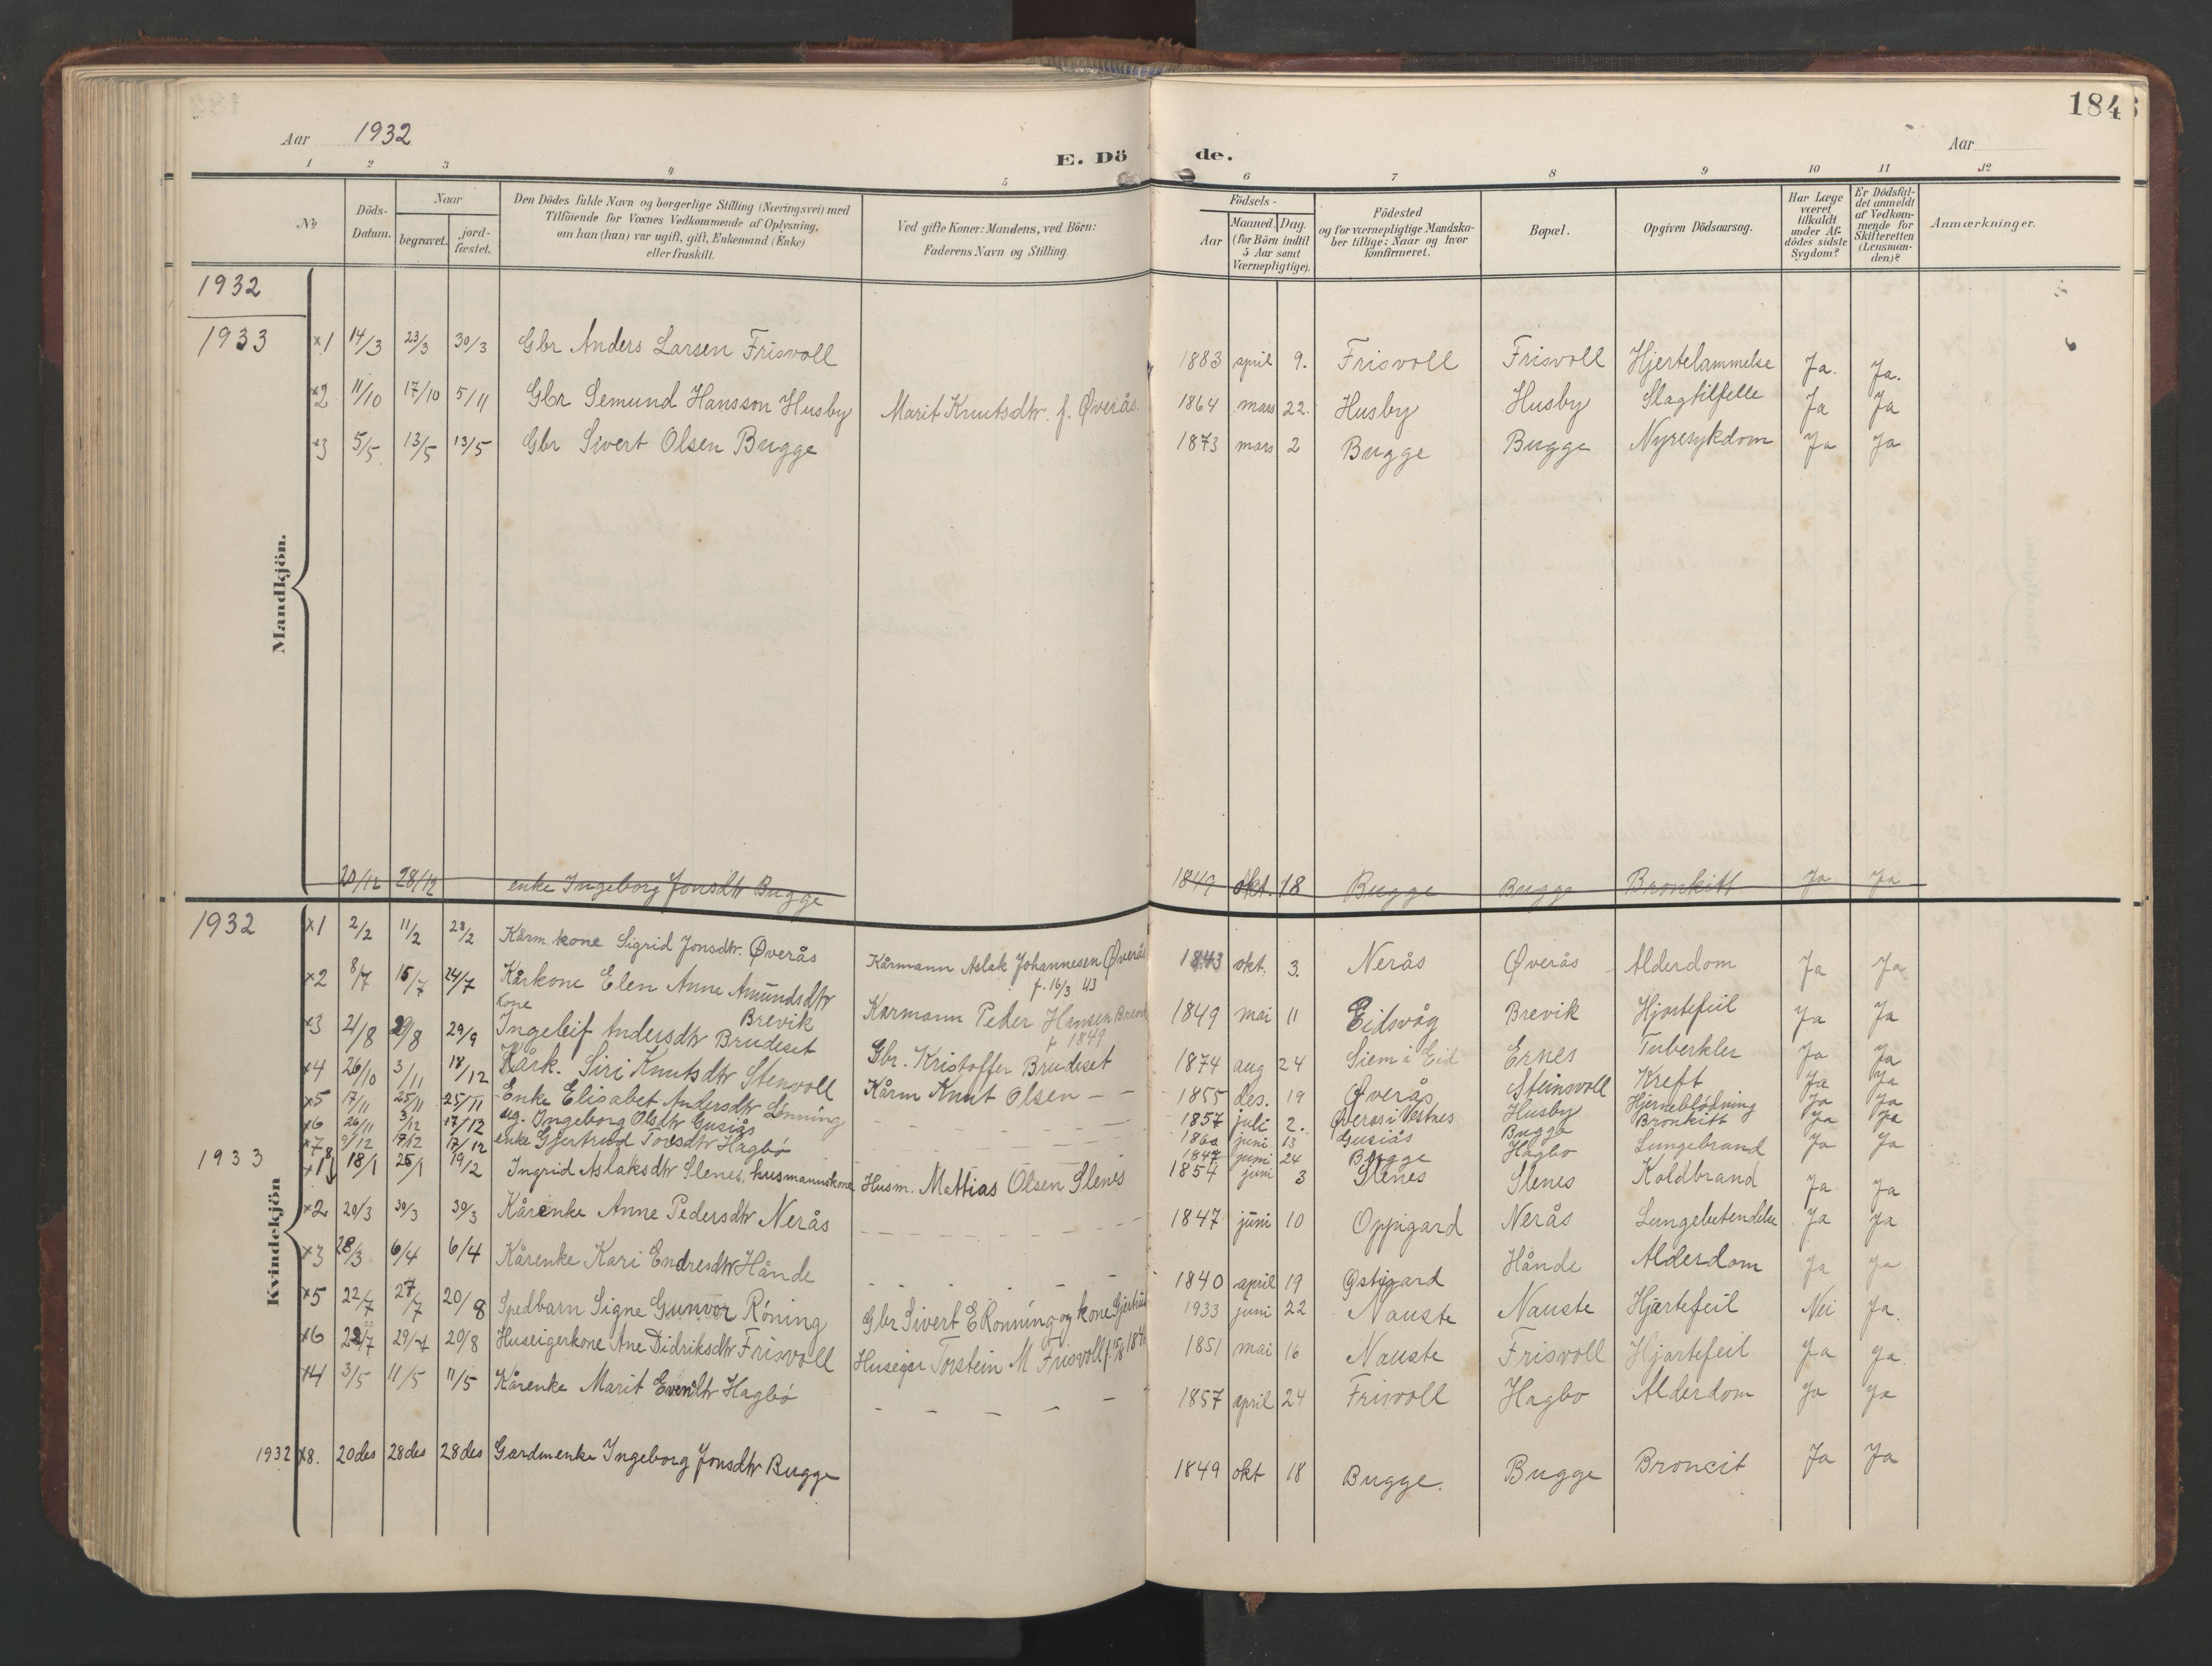 184
Aar 1932
E. Dö de.
Aar
1 2 3 4 5 6 7 8 9 10 11 12
No
Döds-Datum.
Naar
begravet.
jord-fæstet.
Den Dödes fulde Navn og borgerlige Stilling (Næringsvei) med
Tilföiende for Voxnes Vedkommende af Oplysning,
om han (hun) var ugift, gift, Enkemand (Enke)
eller fraskilt.
Ved gifte Koner: Mandens, ved Börn:
Faderens Navn og Stilling.
Födsels-
Aar
Maaned. Dag.
(for Börn indtil
5 Aar samt
Værnepligtige).
Födested
og for værnepligtige Mandska-
ber tillige: Naar og hvor
konfirmeret.
Bopæl.
Opgiven Dödsaarsag.
Har Læge
været
tilkaldt
under Af-
dödes sidste
Sygdom?
Er Dödsfal-
det anmeldt
af Vedkom-
mende for
Skifteretten
(Lensman-
den)?
Anmærkninger.
1932
1933 x1 14/3 23/3 30/3 Gbr Anders Larsen Frisvoll 1883 april 9. Frisvoll Frisvoll Hjertelammelse Ja. Ja.
x2 11/10 17/10 5/11 Gbr Semund Hansson Husby Marit Knutsdtr. f. Øverås. 1864 mars 22. Husby Husby Slagtilfelle Ja Ja
x3 5/5 13/5 13/5 Gbr Sivert Olsen Bugge 1873 mars 2 Bugge Bugge Nyresykdom Ja Ja
Mandkjön.
20/12 28/12 enke Ingeborg Jonsdtr Bugge 1849 okt. 18 Bugge Bugge Bronkitt Ja Ja
1932 x1 2/2 11/2 28/2 Kårm. kone Sigrid Jonsdtr. Øverås Kårmann Aslak Johannesen Øverås f. 16/3 43 1843 okt. 3. Nerås Øverås Alderdom Ja Ja
x2 8/7 15/7 24/7 Kårkone Elen Anne Amundsdtr Brevik Karmann Peder Hansen Brevik f 1849 1849 mai 11 Eidsvåg Brevik Hjertefeil Ja Ja
x3 21/8 29/8 29/9 kone Ingeleif Andersdtr Brudeset Gbr. Kristoffer Brudeset 1874 aug 24 Siem i Eid Ernes Tuberkler Ja Ja
x4 26/10 3/11 18/12 Kårk. Siri Knutsdtr Stenvoll Kårm Knut Olsen – – 1855 des. 19 Øverås Steinsvoll Kreft Ja Ja
x5 17/11 25/11 25/11 Enke Elisabet Andersdtr Lønning 1857 juli 2. Øverås i Vestnes Husby Hjerneblødning Ja Ja
x6 26/11 3/12 17/12 ug. Ingeborg Olsdtr Gusiås juni 13 Gusiås Bugge Bronkitt Ja Ja
x7 9/12 17/12 17/12 enke Gjertrud Toresdtr Hagbø 1847 juni 24 Bugge Hagbø Lungebrand Ja Ja
8
1933 x1 18/1 25/1 19/2 Ingrid Aslaksdtr Slenes, husmannskone Husm. Mattias Olsen Slenes 1854 juni 3 Slenes Slenes Koldbrand Ja Ja
x2 20/3 30/3 30/3 Kårenke Anne Pedersdtr Nerås 1847 juni 10 Oppigard Nerås Lungebetendelse Ja Ja
x3 28/3 6/4 6/4 Kårenke Kari Endresdtr Hånde 1840 april 19 Østigard Hånde Alderdom Ja Ja
Kvindekjön
x5 22/7 27/7 20/8 Spedbarn Signe Gunvor Röning Gbr Sivert E Rönning og kone 1933 juni 22 Nauste Nauste Hjertefeil Nei Ja.
x6 22/7 29/7 20/8 Huseigerkone Ane Didriksdtr Frisvoll Huseier Torstein M Frisvoll 1851 mai 16 Nauste Frisvoll Hjartefeil Ja Ja
x4 3/5 11/5 11/5 Kårenke Marit Evensdtr Hagbø – – – – – 1857 april 24 Frisvoll Hagbø Alderdom Ja Ja
1932 x8. 20 des 28 des 28 des Gardmenke Ingeborg Jonsdtr Bugge 1849 okt 18 Bugge. Bugge Broncit Ja Ja